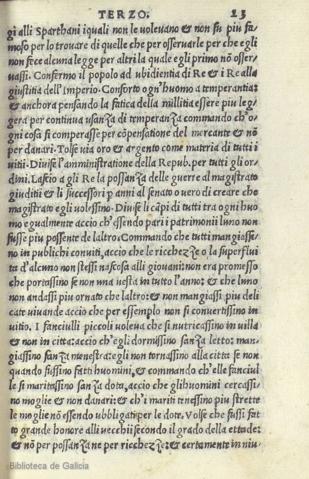 TERZO. 23
gi alli Sparthani iquali non le voleuano & non fu piu fa
moso per lo trouare di quelle che per osseruarle per che egli
non fece alcuna legge per altri la quale egli primo nõ osser
vassi. Confermo il popolo ad vbidientia di Re & i Re alla
giustitia dell'Imperio. Conforto ogn'huomo a temperantia:
& anchora pensando la fatica della militia essere piu leg
gera per continua vsanza di temperanza commando ch'o
gni cosa si comperasse per cõpensatione del mercante & nõ
per danari. Tolse via oro & argento come materia di tutti i
vitii. Diuise l'amministratione della Repub. per tutti gli or
dini. Lascio a gli Re la possanza delle guerre al magistrato
giuditii & li successori p anni al senato o uero di creare che
magistrato egli volessino. Diuise li cãpi di tutti tra ogni huo
mo egualmente accio ch'essendo pari i patrimonii luno non
fusse piu possente de laltro. Commando che tutti mangiasse
no in publichi conuiti, accio che le ricchezze o la superflui
ta d'alcuno non stessi nascosa alli giouani: non era promesso
che portassino se non una uesta in tutto l'anno: & che luno
non andassi piu ornato che laltro: & non mangiassi piu deli
cate uiuande accio che per essemplo non si conuertissino in
vitio. I fanciulli piccoli voleua che si nutricassino in villa
& non in citta: accio ch'egli dormissino sanza letto: man-
giassino sanza menestra: egli non tornassino alla citta se non
quando fussino fatti huomini, & commando ch'elle fanciul
le si maritassino sanza dota, accio che glihuomini cercassi-
no moglie & non danari: & ch'i mariti tenessino piu strette
le moglie nõ essendo vbbligati per le dote. Volse che fussi fat
to grande honore alli vecchi secondo il grado della ettade:
& nõ per possanza ne per ricchezze: & certamente in niu-
Biblioteca de Galicia